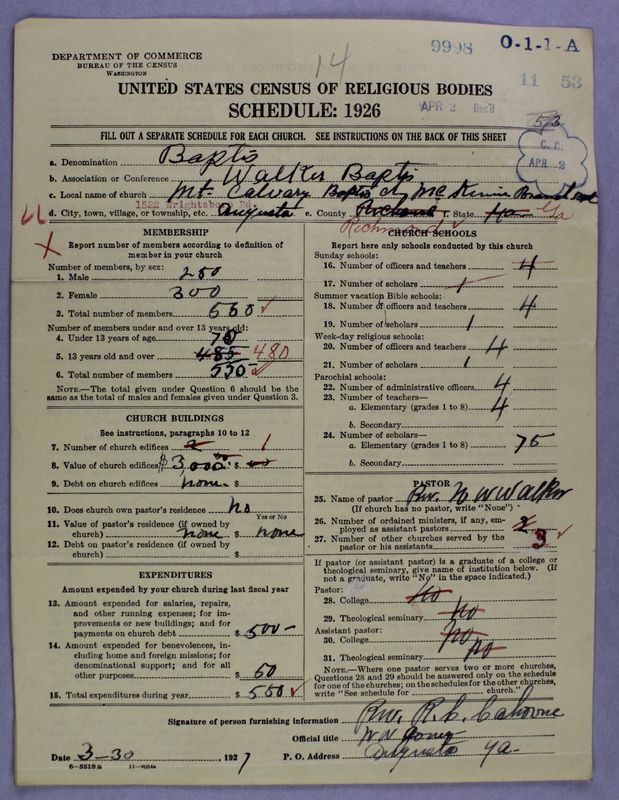 14
9998 O-1-1-A
11 53
DEPARTMENT OF COMMERCE
BUREAU OF THE CENSUS
WASHINGTON
UNITED STATES CENSUS OF RELIGIOUS BODIES
SCHEDULE: 1926
APR 2 Rec'd
53
FILL OUT A SEPARATE SCHEDULE FOR EACH CHURCH. SEE INSTRUCTIONS ON THE BACK OF THIS SHEET
C. C.
APR 2
a. Denomination Baptis
b. Association or Conference Walker Baptis
c. Local name of church Mt. Calvary Baptis
1522 Wrightsboro Rd.
d. City, town, village, or township, etc. Augusta e. County Richmond f. State Ga
Richmond Ga
MEMBERSHIP
Report number of members according to definition of
member in your church
Number of members, by sex:
1. Male 250
2. Female 300
3. Total number of members 550
Number of members under and over 13 years old:
4. Under 13 years of age 70
5. 13 years old and over 485 480
6. Total number of members 550
NOTE.—The total given under Question 6 should be the
same as the total of males and females given under Question 3.
CHURCH BUILDINGS
See instructions, paragraphs 10 to 12
7. Number of church edifices 2 1
8. Value of church edifices $3,000.00 $
9. Debt on church edifices none $
10. Does church own pastor's residence no
Yes or No
11. Value of pastor's residence (if owned by
church) none $ none
12. Debt on pastor's residence (if owned by
church) $
EXPENDITURES
Amount expended by your church during last fiscal year
13. Amount expended for salaries, repairs,
and other running expenses; for im-
provements or new buildings; and for
payments on church debt $ 500-
14. Amount expended for benevolences, in-
cluding home and foreign missions; for
denominational support; and for all
other purposes $ 50
15. Total expenditures during year $ 550
CHURCH SCHOOLS
Report here only schools conducted by this church
Sunday schools:
16. Number of officers and teachers 4
17. Number of scholars 1
Summer vacation Bible schools:
18. Number of officers and teachers 4
19. Number of scholars 1
Week-day religious schools:
20. Number of officers and teachers 4
21. Number of scholars 1
Parochial schools:
22. Number of administrative officers 4
23. Number of teachers—
a. Elementary (grades 1 to 8) 4
b. Secondary
24. Number of scholars—
a. Elementary (grades 1 to 8) 75
b. Secondary
PASTOR
25. Name of pastor Rev. N W Walker
(If church has no pastor, write "None")
26. Number of ordained ministers, if any, em-
ployed as assistant pastors 2
27. Number of other churches served by the
pastor or his assistants 3
If pastor (or assistant pastor) is a graduate of a college or
theological seminary, give name of institution below. (If
not a graduate, write "No" in the space indicated.)
Pastor:
28. College no
29. Theological seminary no
Assistant pastor:
30. College no
31. Theological seminary no
NOTE.—Where one pastor serves two or more churches,
Questions 28 and 29 should be answered only on the schedule
for one of the churches; on the schedules for the other churches,
write "See schedule for church."
Signature of person furnishing information Rev. R. C. Calhoune
Official title
Date 3-30, 1927 P. O. Address Augusta Ga-